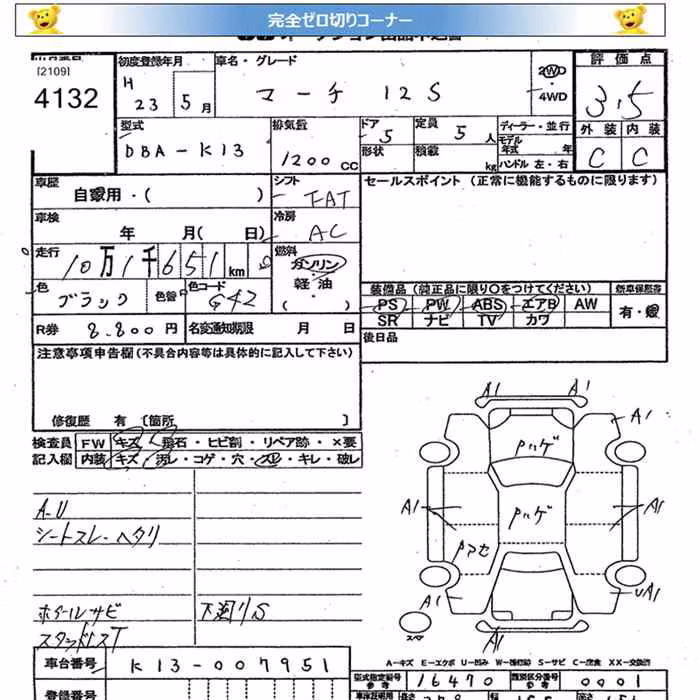 完全ゼロ切りコーナー
[2109]
4132
初度登録年月 車名・グレード 評価点
H 23 年 5 月 マーチ 12S 2WD ・ 4WD 3.5
型式 排気量 ドア 定員 ディーラー・並行 外装 内装
DBA-K13 1200 cc 5 5 人 モデル年式 年 C C
形状 積載 kg ハンドル 左・右
車歴 シフト セールスポイント (正常に機能するものに限ります)
自家用・( ) FAT
車検 冷房
年 月( 日) AC
走行 燃料
10万1千651 km ガソリン
軽油
( )
色 色替 色コード 装備品 (純正品に限り○をつけてください) 新車保証書
ブラック G42 PS PW ABS エアB AW 有・
SR ナビ TV カワ
R券 8,800 円 名変通知期限 月 日 後日品
注意事項申告欄(不具合内容等は具体的に記入して下さい)
修復歴 有 [箇所 ]
検査員 FW キズ・飛石・ヒビ割・リペア跡・×要
記入欄 内装 キズ・汚レ・コゲ・穴・スレ・キレ・破レ
A1 A1
A1
Pハゲ
A-U
シートスレ-ヘタリ
A1 Pハゲ A1
Pアセ
A1 UA1
ホイールサビ 下廻りS
スタッドレスT
スペア
A1
A-キズ E-エクボ U-凹み W-補修跡 S-サビ C-腐食 XX-交換済
車台番号 K13-007951
型式指定番号 参考 16470 類別区分番号 参考 0001
登録番号